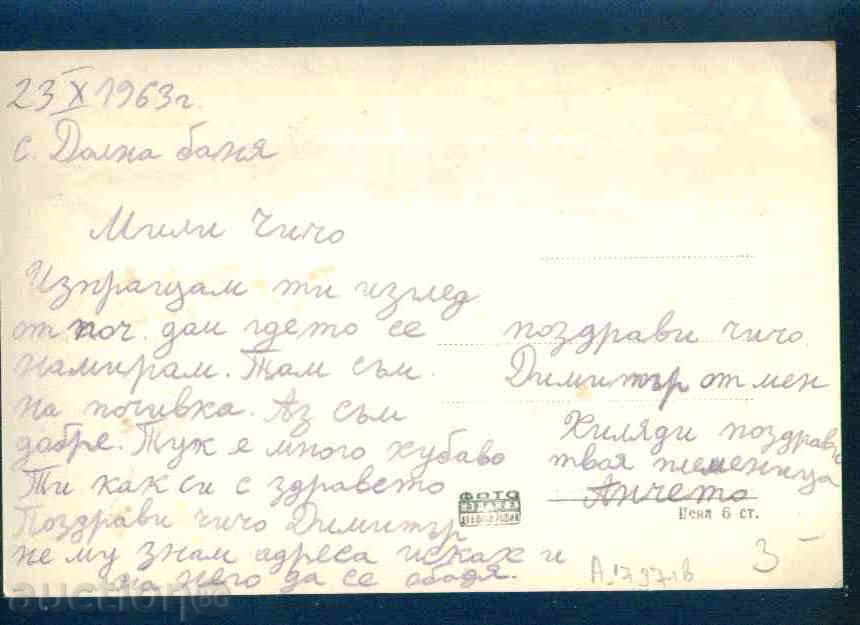 23 X 1963 г.
с. Долна баня
Мили Чичо
Изпращам ти изглед
от поч. дом гдето се
намирам. Там съм
на почивка. Аз съм
добре. Тук е много хубаво
Ти как си с здравето
Поздрави чичо Димитър
не му знам адреса исках и
на него да се обадя.
поздрави чичо
Димитър от мен
Хиляди поздрави
твоя племеница
Анчето
ФОТО
Цена 6 ст.
А 1797 в
3-